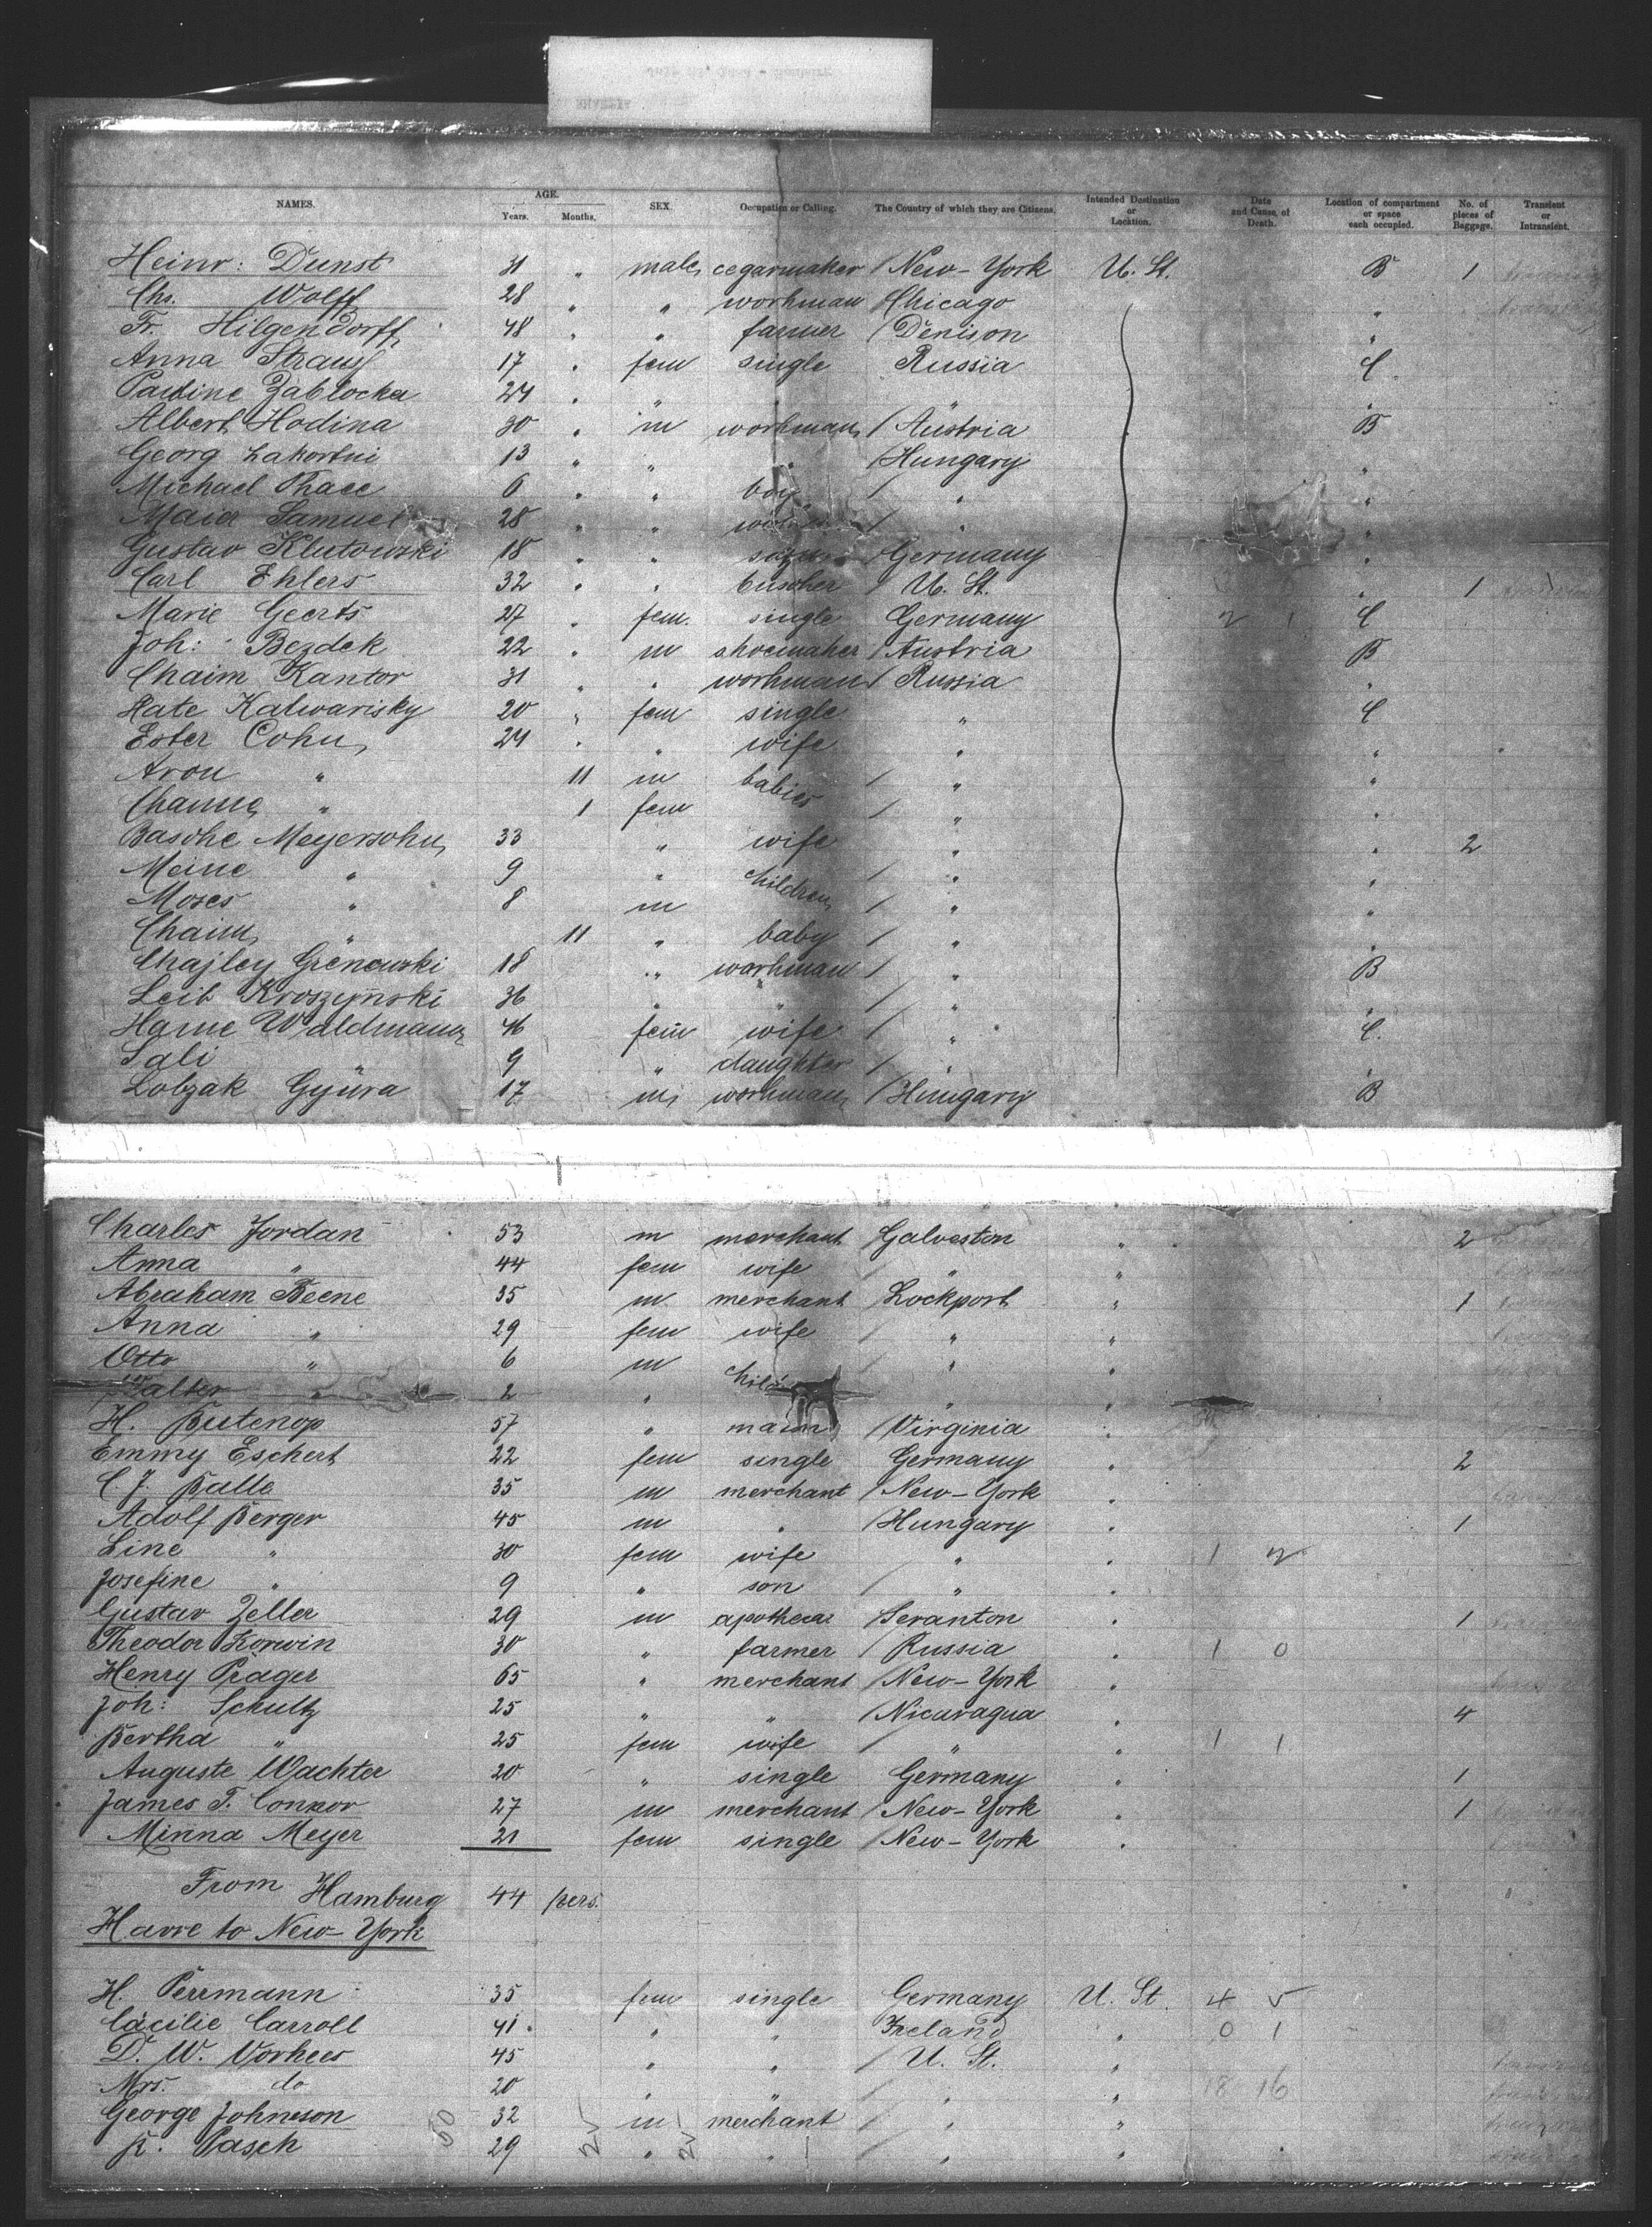 NAMES. AGE. Years. Months. SEX. Occupation or Calling. The Country of which they are Citizens. Intended Destination or Location. Date and Cause of Death. Location of compartment or space each occupied. No. of pieces of Baggage. Transient or Intransient.
Heinr: Dunst 31 " male cegarmaker / New-York U. St. B 1
Chs. Wolff 28 " " workman Chicago "
Fr. Hilgendorff 48 " " farmer / Denison "
Anna Strauss 17 " fem single Russia C
Pauline Zablocka 24 " " " "
Albert Hodina 30 " m workman / Austria B
Georg Lakortni 13 " " " / Hungary "
Michael Thace 6 " " boy / " "
Maier Samuel 28 " " / " "
Gustav Klutowski 18 " " / Germany "
Carl Ehlers 32 " " butcher / U. St. " 1
Marie Geerts 27 " fem. single Germany 2 1 C
Joh: Bezdek 22 " m shoemaker / Austria B
Chaim Kantor 31 " " workman / Russia "
Hate Kalwarisky 20 " fem single " C
Ester Cohn 24 " " wife " "
Aron " 11 m babies / " "
Channe " 1 fem / " "
Basche Meyersohn 33 " wife " " 2
Meine " 9 " children / " "
Moses " 8 m / " "
Chaim " 11 " baby / " "
Chajley Grenewski 18 " workman / " B
Leib Kroszynski 36 " " / "
Hanne Waldmann 46 fem wife / " C.
Sali 9 " daughter / " "
Lobzak Gyüra 17 m workman / Hungary B
Charles Jordan 53 m merchant Galveston " 2
Anna " 44 fem wife / " "
Abraham Beene 35 m merchant / Lockport " 1
Anna " 29 fem wife / " "
Otto " 6 m / " "
Walter " 2 " child " "
H. Butenop 57 " / Virginia "
Emmy Eschert 22 fem single Germany " 2
C J. Balte 35 m merchant / New-York "
Adolf Berger 45 m " / Hungary " 1
Line " 30 fem wife " " 1 2
Josefine " 9 " son / " "
Gustav Zeller 29 m apothecar / Scranton " 1
Theodor Korwin 30 " farmer / Russia " 1 0
Henry Prager 65 " merchant / New-York "
Joh: Schultz 25 " " / Nicaragua " 4
Bertha " 25 fem wife / " " 1 1
Auguste Wachter 20 " single Germany " 1
James T. Connor 27 m merchant / New-York " 1
Minna Meyer 21 fem single / New-York "
From Hamburg 44 pers.
Havre to New-York
H. Perrmann 35 fem single Germany U. St. 4 5
Cäcilie Carroll 41 " " Ireland " 0 1
D. W. Vorhees 45 " " / U. St. "
Mrs. do 20 " " / " " 18 16
George Johnson 32 m merchant / " "
R. Pasch 29 " " / " "
50